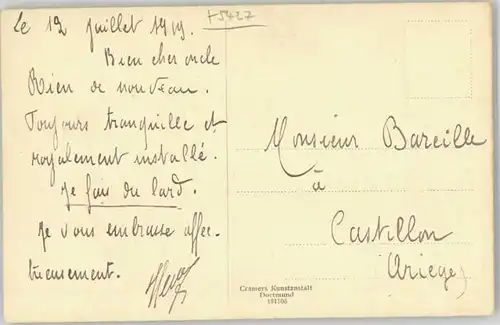 Le 12 juillet 1919.
+5427
Bien cher oncle
Rien de nouveau.
Toujours tranquille et
royalement installé.
Je fais du lard.
Je vous embrasse affec-
tueusement.
Monsieur Bareille
à
Castillon
(Ariege)
Cramers Kunstanstalt
Dortmund